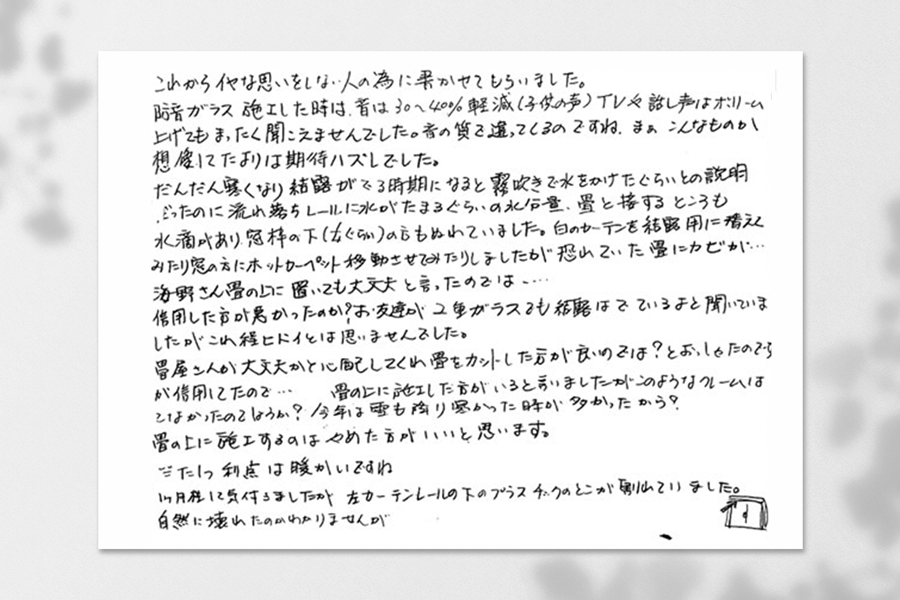 これからイヤな思いをしない人の為に書かせてもらいました。
防音ガラス施工した時は、音は30〜40%軽減(子供の声)TVや話し声はボリューム
上げてもまったく聞こえませんでした。音の質で違ってくるのですね、まぁこんなものか
想像してたよりは期待ハズレでした。
だんだん寒くなり結露がでる時期になると霧吹きで水をかけたぐらいとの説明
だったのに流れ落ちレールに水がたまるぐらいの水分量、畳と接するところも
水滴があり窓枠の下(木ぐらい)の方もぬれていました。白のカーテンを結露用に替えて
みたり窓の方にホットカーペット移動させてみたりしましたが恐れていた畳にカビが…
海野さん畳の上に置いても大丈夫と言ったのでは…
信用した方が悪かったのか?お友達が2重ガラスでも結露はでているよと聞いていま
したがこれ程ヒドイとは思いませんでした。
畳屋さんが大丈夫かと心配してくれ畳をカットした方が良いのでは?とおっしゃたのですら
が信用してたので… 畳の上に施工した方がいると言いましたがこのようなクレームは
でなかったのでしょうか?今年は雪も降り寒かった時が多かったから?
畳の上に施工するのはやめた方がいいと思います。
ただ1つ利点は暖かいですね
1ヶ月程して気付きましたが 左カーテンレールの下のプラスチックのとこが割れていました。
自然に壊れたのかわかりませんが